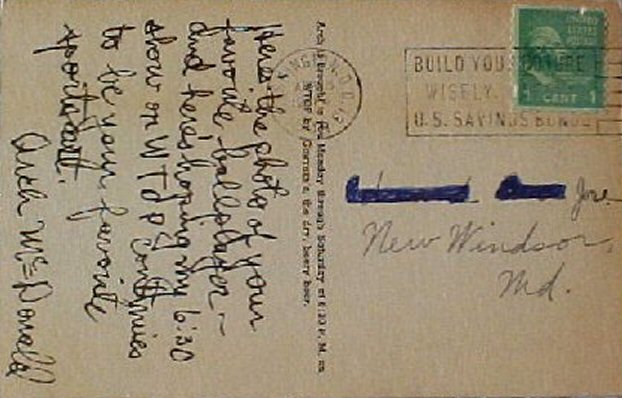 Here's the photo of your
favorite ballplayer —
and here's hoping my 6:30
show on WTOP continues
to be your favorite
sportcast.
Arch McDonald
Arch is Broadcast Monday through Saturday at 6:30 P. M. on
WTOP by Gunther's, the dry, beery beer.
D.C.
BUILD YOUR FUTURE
WISELY.
U.S. SAVINGS BONDS
UNITED
STATES
POSTAGE
1 CENT 1
New Windsor,
Md.